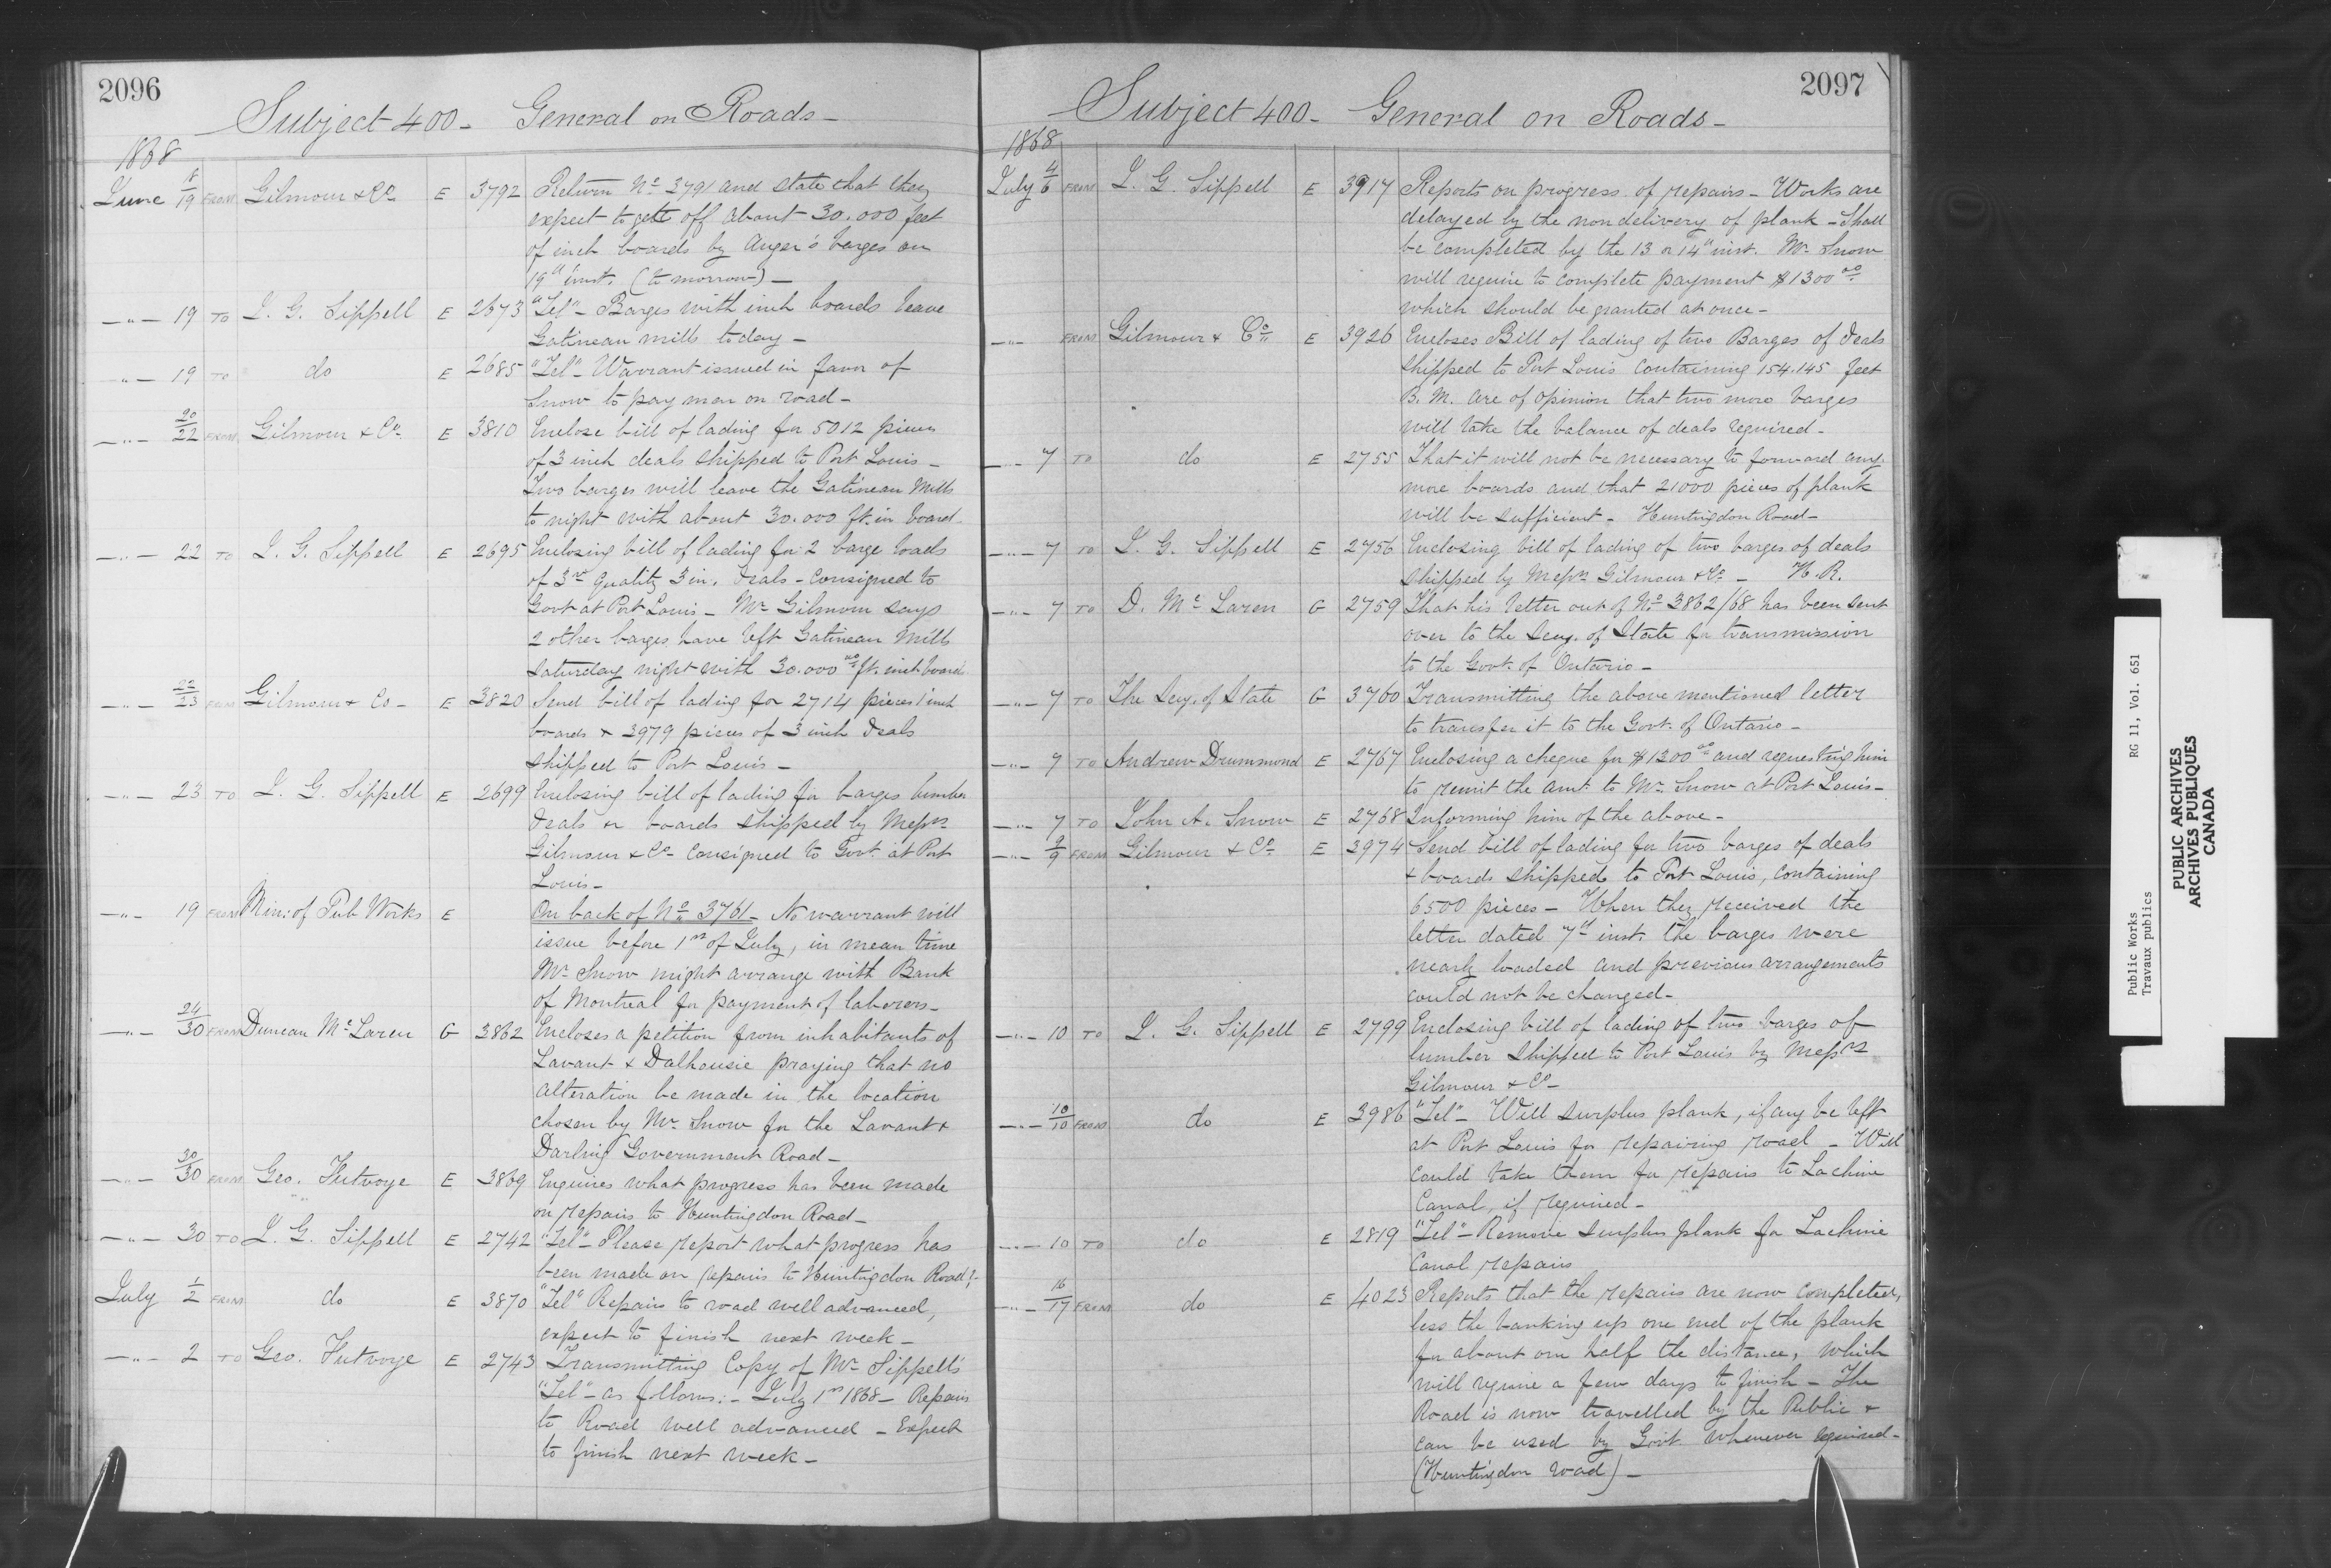 2096
Subject 400 - General on Roads -
1868
June 18/19 FROM Gilmour & Co. E 3792 Return No. 3791 and state that they
expect to gett off about 30.000 feet
of inch boards by Auger's barges on
19th inst. (to morrow) -
-"- 19 TO J. G. Sippell E 2673 "Tel" - Barges with inch boards leave
Gatineau mills today -
-"- 19 TO do E 2685 "Tel" - Warrant issued in favor of
Snow to pay men on road -
-"- 20/22 FROM Gilmour & Co. E 3810 Enclose bill of lading for 5012 pieces
of 3 inch deals shipped to Port Louis -
Two barges will leave the Gatineau Mills
to night with about 30.000 ft. in board.
-"- 22 TO J. G. Sippell E 2695 Enclosing bill of lading for 2 barge loads
of 3rd quality 3 in. deals - Consigned to
Govt at Port Louis - Mr Gilmour says
2 other barges have left Gatineau Mills
Saturday night with 30.000 00 ft. inch board
-"- 22/23 FROM Gilmour & Co - E 3820 Send bill of lading for 2714 pieces 1 inch
boards & 3979 pieces of 3 inch deals
shipped to Port Louis -
-"- 23 TO J. G. Sippell E 2699 Enclosing bill of lading for barges lumber
deals or boards shipped by Messrs
Gilmour & Co - Consigned to Govt. at Port
Louis -
-"- 19 FROM Min: of Pub Works E On back of No. 3761 - No warrant will
issue before 1st of July, in mean time
Mr Snow might arrange with Bank
of Montreal for payment of laborers -
-"- 24/30 FROM Duncan McLaren G 3862 Encloses a petition from inhabitants of
Lavant & Dalhousie praying that no
alteration be made in the location
chosen by Mr. Snow for the Lavant &
Darling Government Road -
-"- 30/30 FROM Geo. Futvoye E 3869 Enquires what progress has been made
on repairs to Huntingdon Road -
-"- 30 TO J. G. Sippell E 2742 "Tel" - Please report what progress has
been made on repairs to Huntingdon Road? -
July 1/2 FROM do E 3870 "Tel" Repairs to road well advanced,
expect to finish next week -
-"- 2 TO Geo. Futvoye E 2743 Transmitting Copy of Mr Sippell's
"Tel" - as follows: - July 1st 1868 - Repairs
to Road well advanced - Expect
to finish next week -
2097
Subject 400 - General on Roads -
1868
July 4/6 FROM J. G. Sippell E 3917 Reports on progress of repairs - Works are
delayed by the non delivery of plank - Shall
be completed by the 13 or 14th inst. Mr Snow
will require to complete payment $1300 00
which should be granted at once -
-"- FROM Gilmour & Co. E 3926 Encloses Bill of lading of two Barges of deals
shipped to Port Louis containing 154.145 feet
B. M. are of opinion that two more barges
will take the balance of deals required -
-"- 7 TO do E 2755 That it will not be necessary to forward any
more boards and that 21000 pieces of plank
will be sufficient - Huntingdon Road -
-"- 7 TO J. G. Sippell E 2756 Enclosing bill of lading of two barges of deals
shipped by Messrs Gilmour & Co - H. R.
-"- 7 TO D. McLaren G 2759 That his letter out of No. 3862/68 has been sent
over to the Secy. of State for transmission
to the Govt. of Ontario -
-"- 7 TO The Secy. of State G 3760 Transmitting the above mentioned letter
to transfer it to the Govt. of Ontario -
-"- 7 TO Andrew Drummond E 2767 Enclosing a cheque for $1300 00 and requesting him
to remit the amt. to Mr. Snow at Port Louis -
-"- 7 TO John A. Snow E 2768 Informing him of the above -
-"- 9/9 FROM Gilmour & Co. E 3974 Send bill of lading for two barges of deals
& boards shipped to Port Louis, containing
6500 pieces - When they received the
letter dated 7th inst. the barges were
nearly loaded and previous arrangements
could not be changed -
-"- 10 TO J. G. Sippell E 2799 Enclosing bill of lading of two barges of
lumber shipped to Port Louis by Messrs
Gilmour & Co -
-"- 10/10 FROM do E 3986 "Tel" - Will surplus plank, if any be left
at Port Louis for repairing road - Will
could take them for repairs to Lachine
Canal, if required -
-"- 10 TO do E 2819 "Tel" - Remove surplus plank for Lachine
Canal repairs
-"- 16/17 FROM do E 4023 Reports that the repairs are now completed,
less the banking up one end of the plank
for about one half the distance, which
will require a few days to finish - The
Road is now travelled by the Public &
can be used by Govt. whenever required -
(Huntingdon road) -
Public Works
Travaux publics
RG 11, Vol. 651
PUBLIC ARCHIVES
ARCHIVES PUBLIQUES
CANADA